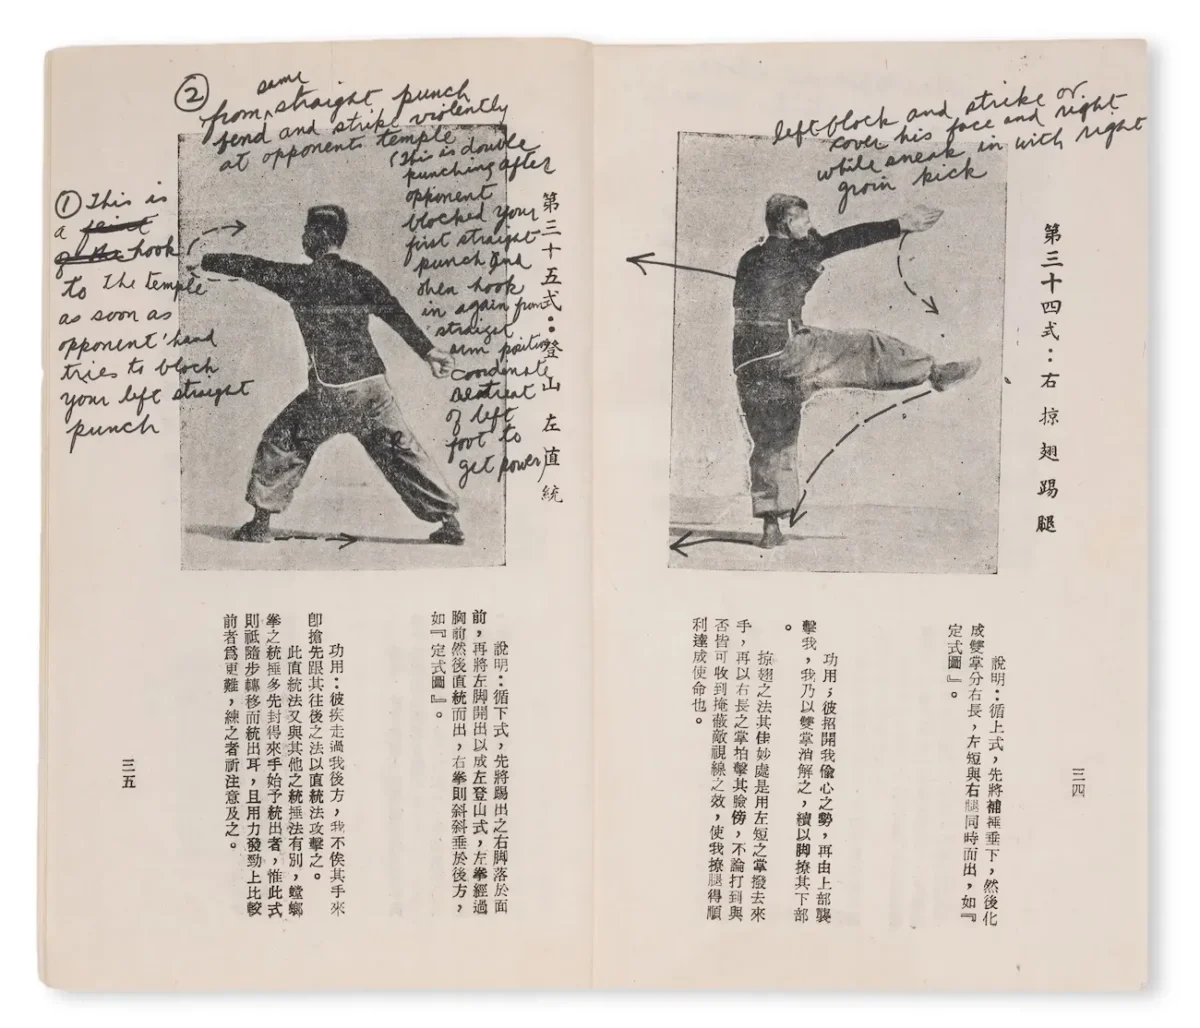 left block and strike or
cover his face and right
while sneak in with right
groin kick
第三十四式：右掠翅踢腿
說明：循上式，先將補捶垂下，然後化
成雙掌分右長，左短與右腿同時而出，如『
定式圖』。
功用；彼招開我偷心之勢，再由上部襲
擊我，我乃以雙掌消解之，續以脚撩其下部
。
掠翅之法其佳妙處是用左短之掌撥去來
手，再以右長之掌拍擊其臉傍，不論打到與
否皆可收到掩蔽敵視線之效，使我撩腿得順
利達成使命也。
三四
① This is
a feint
of the hook
to the temple
as soon as
opponent' hand
tries to block
your left straight
punch
② same
from straight punch
bend and strike violently
at opponents temple
(This is double
punching after
opponent
blocked your
first straight
punch and
then hook
in again from
straight
arm position
coordinate
retreat
of left
foot to
get power)
第三十五式：登山左直統
說明：循下式，先將踢出之右脚落於面
前，再將左脚開出以成左登山式，左拳經過
胸前然後直統而出，右拳則斜斜垂於後方，
如『定式圖』。
功用：彼疾走過我後方，我不俟其手來
卽搶先跟其往後之法以直統法攻擊之。
此直統法又與其他之統捶法有別，螳螂
拳之統捶多先封得來手始予統出者，惟此式
則祇隨步轉移而統出耳，且用力發勁上比較
前者爲更難，練之者祈注意及之。
三五